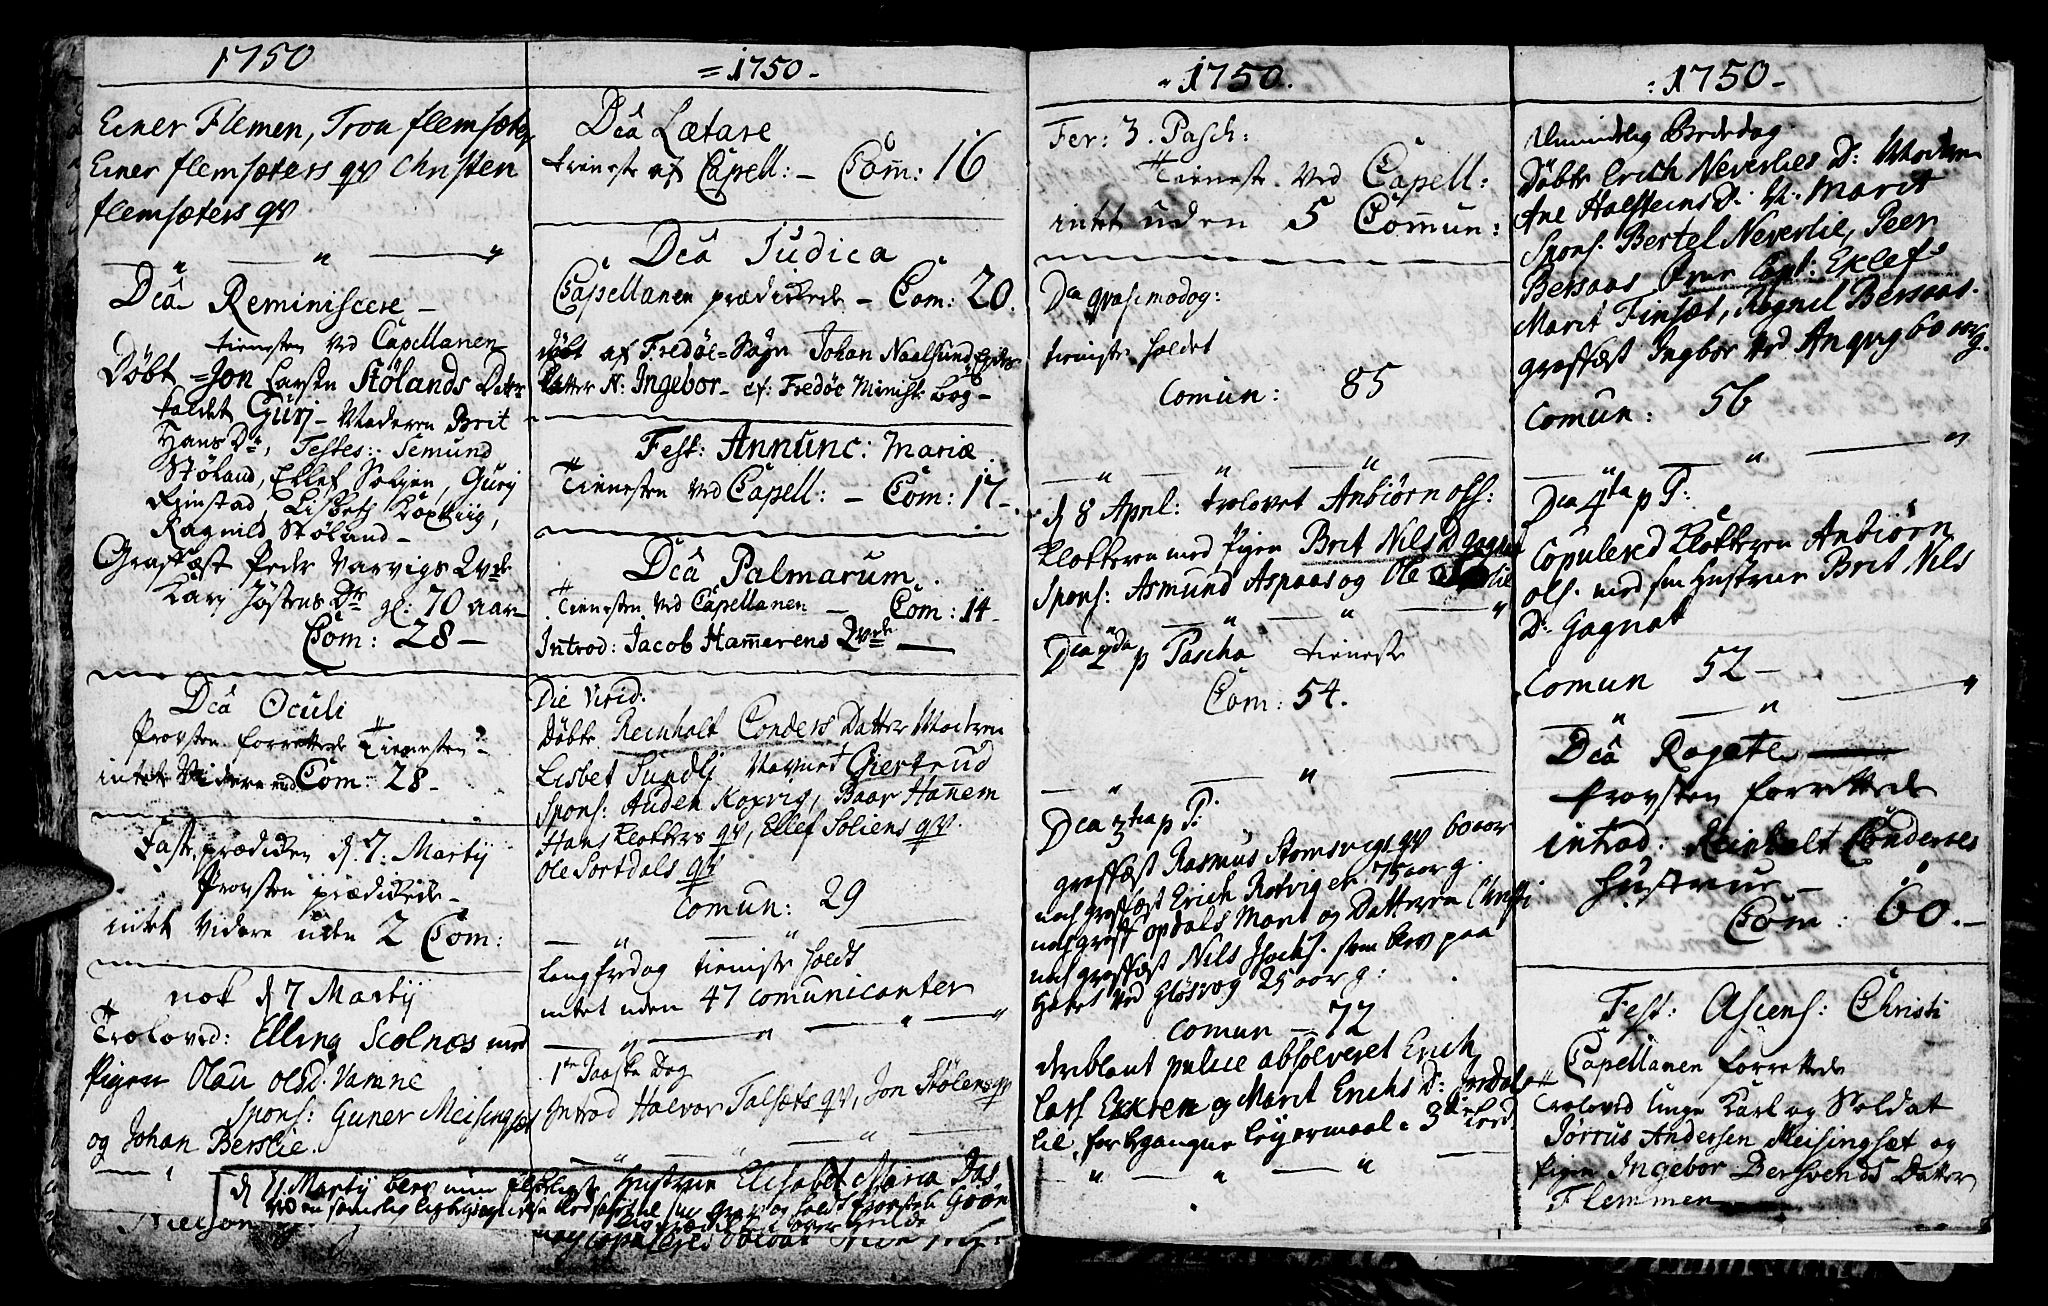 1750
Einer Flemen, Tron flemsæter
Einer flemsæters qv Christen
flemsæters qv
Dcâ Reminiscere -
tienesten ved Capellanen
Døbt Jon Larsen Stølands Datter
kaldet Gurj - Moderen Brit
Hans Dr, Testes: Semund
Støland, Ellef Soljen, Gurj
Rimstad, Lisbeth Koxviig,
Ragnild Støland -
Graffæst Peder Varvigs Qvde
Karj Jøstens Dtr gl: 70 aar
Com: 28 -
Dcâ Oculi
Provsten forrettede Tienesten -
intet videre Com: 28 -
Faste prædiken d. 7: Martij
Provsten prædikede -
intet videre uden 2 Com:
nok d 7 Martij
Troloved: Elling Scolnæs med
Pigen Olau Olsd. Varvine
Spons: Guner Meisingset
og Johan Berslie.
d 11 Martij
Nielson
=1750-
Dcâ Lætare
tieneste af Capell: - Com: 16
Dcâ Judica
Capellanen prædikede - Com: 20.
døbt af Fredøe-Sogn Johan Naalsund
Datter N: Ingebor - cf: Fredøe Minist: Bog -
Fest: Annunc: Mariæ
Tienesten ved Capell: - Com: 17 -
Dcâ Palmarum.
Tienesten ved Capellanen - Com: 14 -
Introd: Jacob Hamerens Qvde
Die Virid:
Døbte Reinholt Conders Datter Moderen
Lisbet Sundlj Navnet Giertrud
Spons: Auden Koxvig, Baar Hanem
Hans Klokkers qv, Ellef Soliens qv.
Ole Sortdals qv
Comun: 29
Langfredag tieniste holdt
intet uden 47 comunicanter
1te Paaske Dag
Introd Halvor Talsæts qv, Jon Stølens qv
Hustrue Elisabet Maria
1750.
Fer: 3. Pasch:
Tieneste ved Capell:
intet uden 5 Comun:
Dca qvasimodog:
tieniste holdet
Comun: 85
d 8 April: trolovet Anbiørn Ols:
klokkeren med Pigen Brit Nils D Gagnat
Spons: Asmund Aspaas og Ole
Dca 2da p Pascha tieneste
Com: 54.
Dca 3tia p P:
graffæst Rasmus Stomsvigs qv 60 aar
noch graffæst Erich Rotvigen 75 aar g.
noch graff Opdals Marit og Datteren Christi
noch graffæst Nils som blev paa
Havet ved Gløsvog 25 aar g:
comun - 72
deriblant publice absolveret Erich
Lars Exren og Marit Erichs D:
lie, for begangne leyermaal 3die
:1750-
Almindelig Bededag
Døbte Erich Neverlies D: Moderen
Ane Halsteins D: N: Marit
Spons: Bertel Neverlie, Peer
Bersaas Frue Capt: Eklef
Marit Finset, Rognil Bersaas.
graffæst Ingbor ved Angvig 60 aar g.
Comun: 56
Dca 4ta p P:
Copulered Klokkeren Anbiørn
Ols. med sin Hustrue Brit Nils
D: Gagnat
Comun 52 -
Dcâ Rogate
Provsten forrettede
introd: Reinholt Conderses
Hustrue -
Com: 60. -
Fest: Ascens: Christi
Capellanen forrettede
Troloved unge Karl og Soldat
Jørrus Andersen Meisingset og
Pigen Ingebor Bersvends Datter
Flemmen